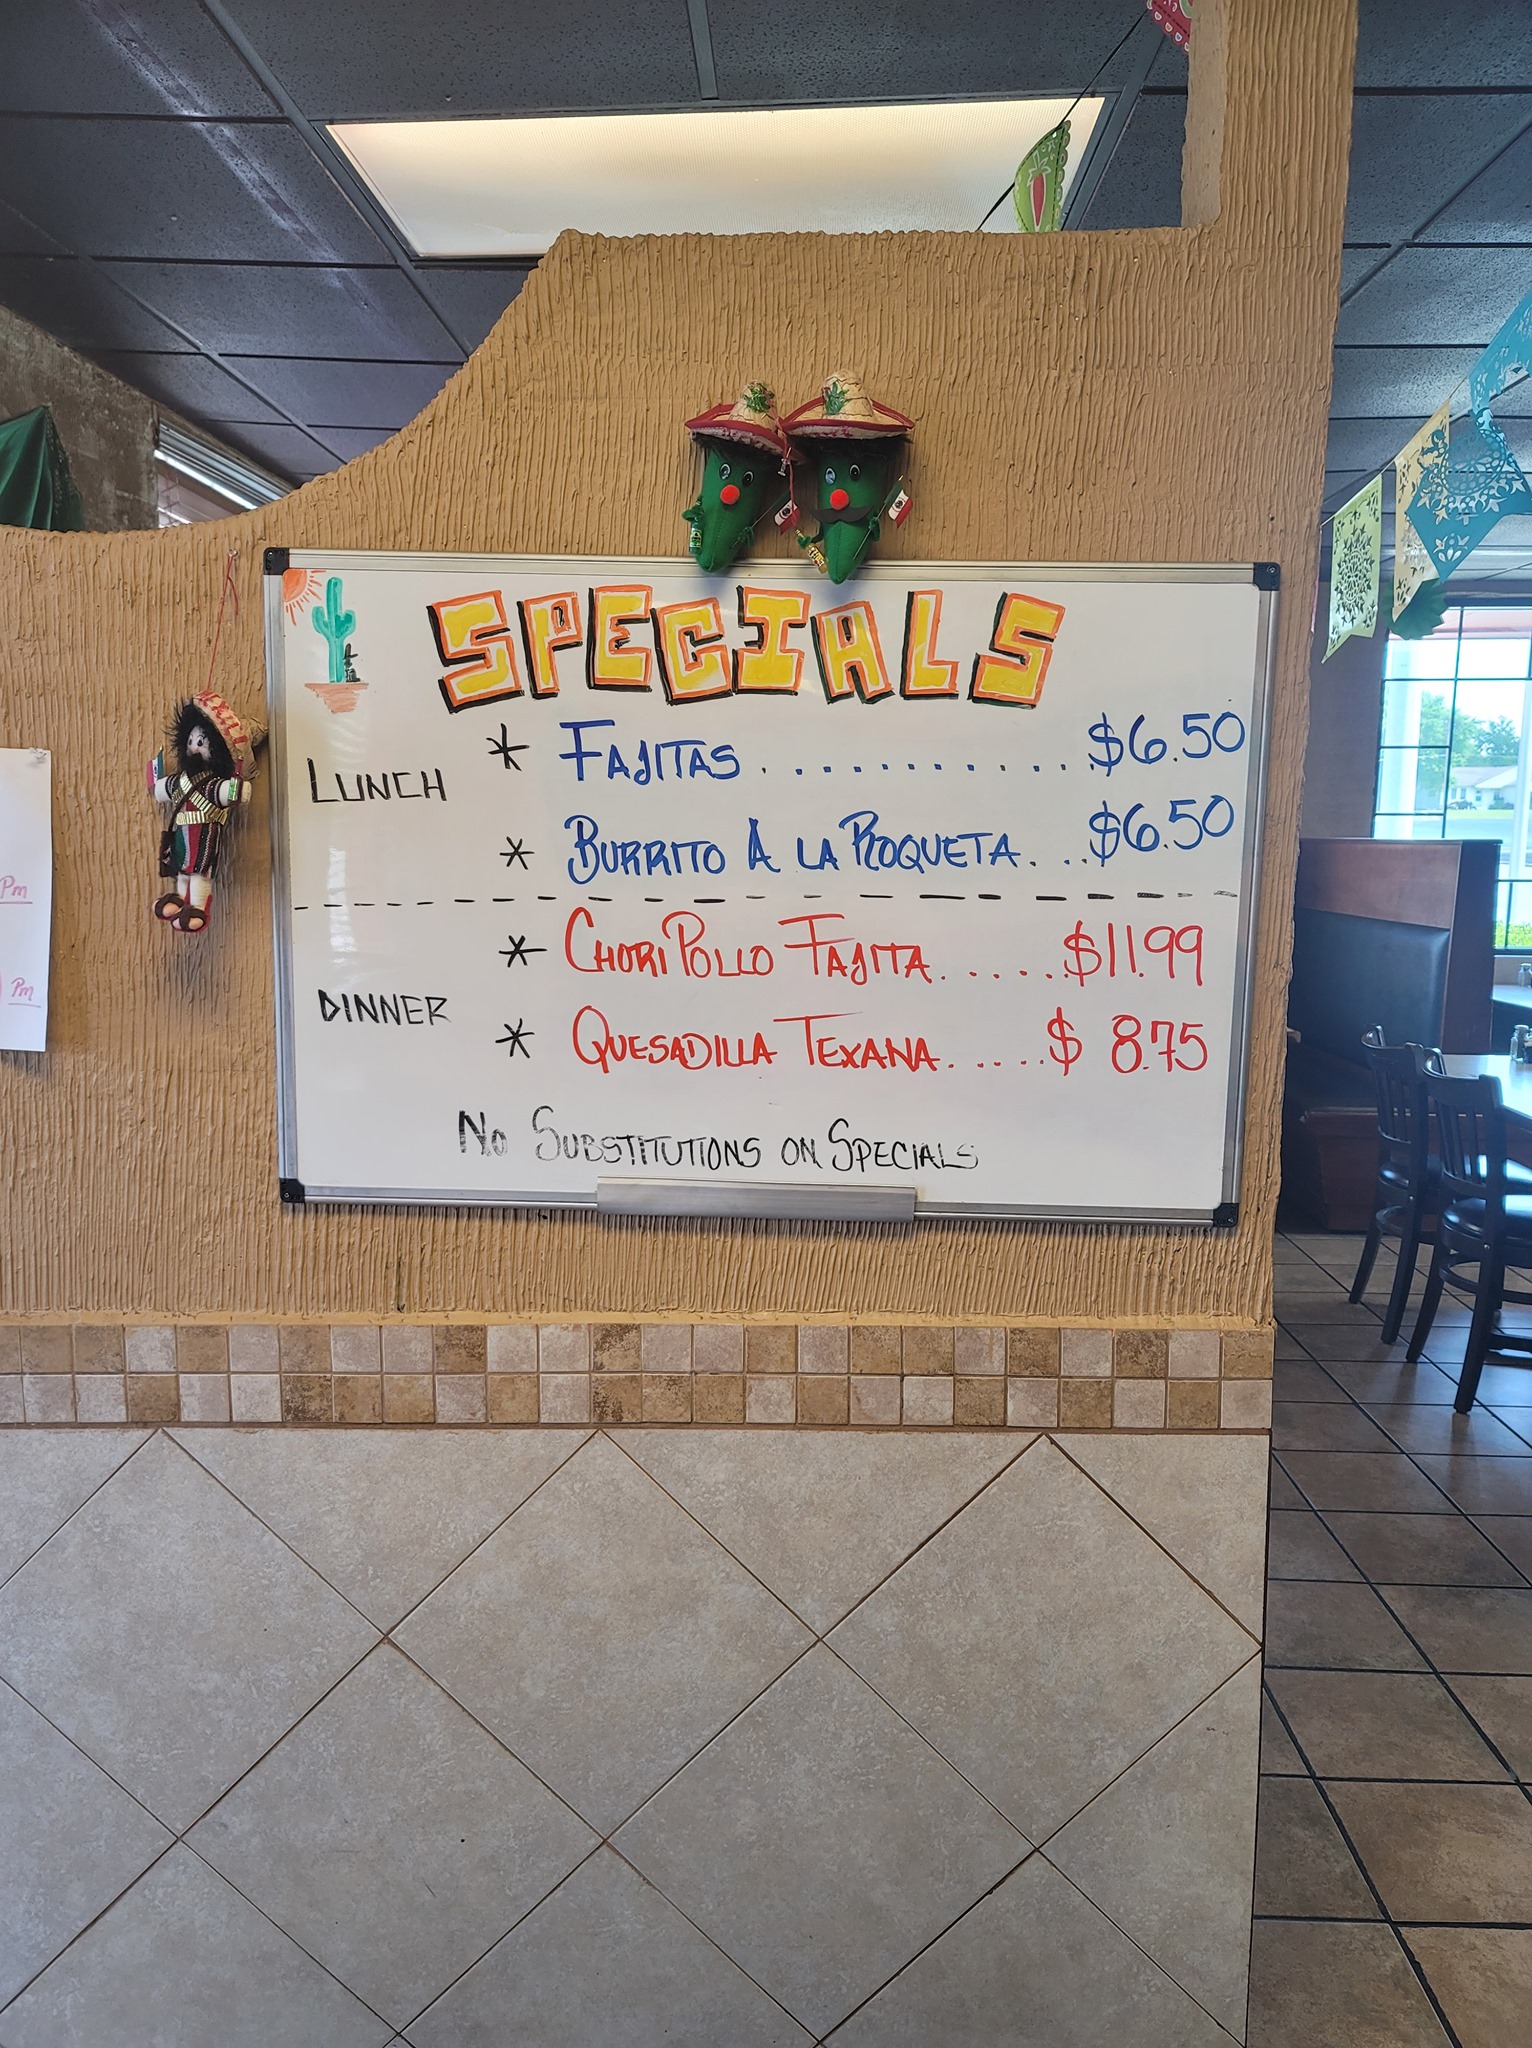 SPECIALS
LUNCH
* FAJITAS............$6.50
* BURRITO A LA ROQUETA...$6.50
DINNER
* CHORIPOLLO FAJITA......$11.99
* QUESADILLA TEXANA.....$ 8.75
NO SUBSTITUTIONS ON SPECIALS
Pm
Pm